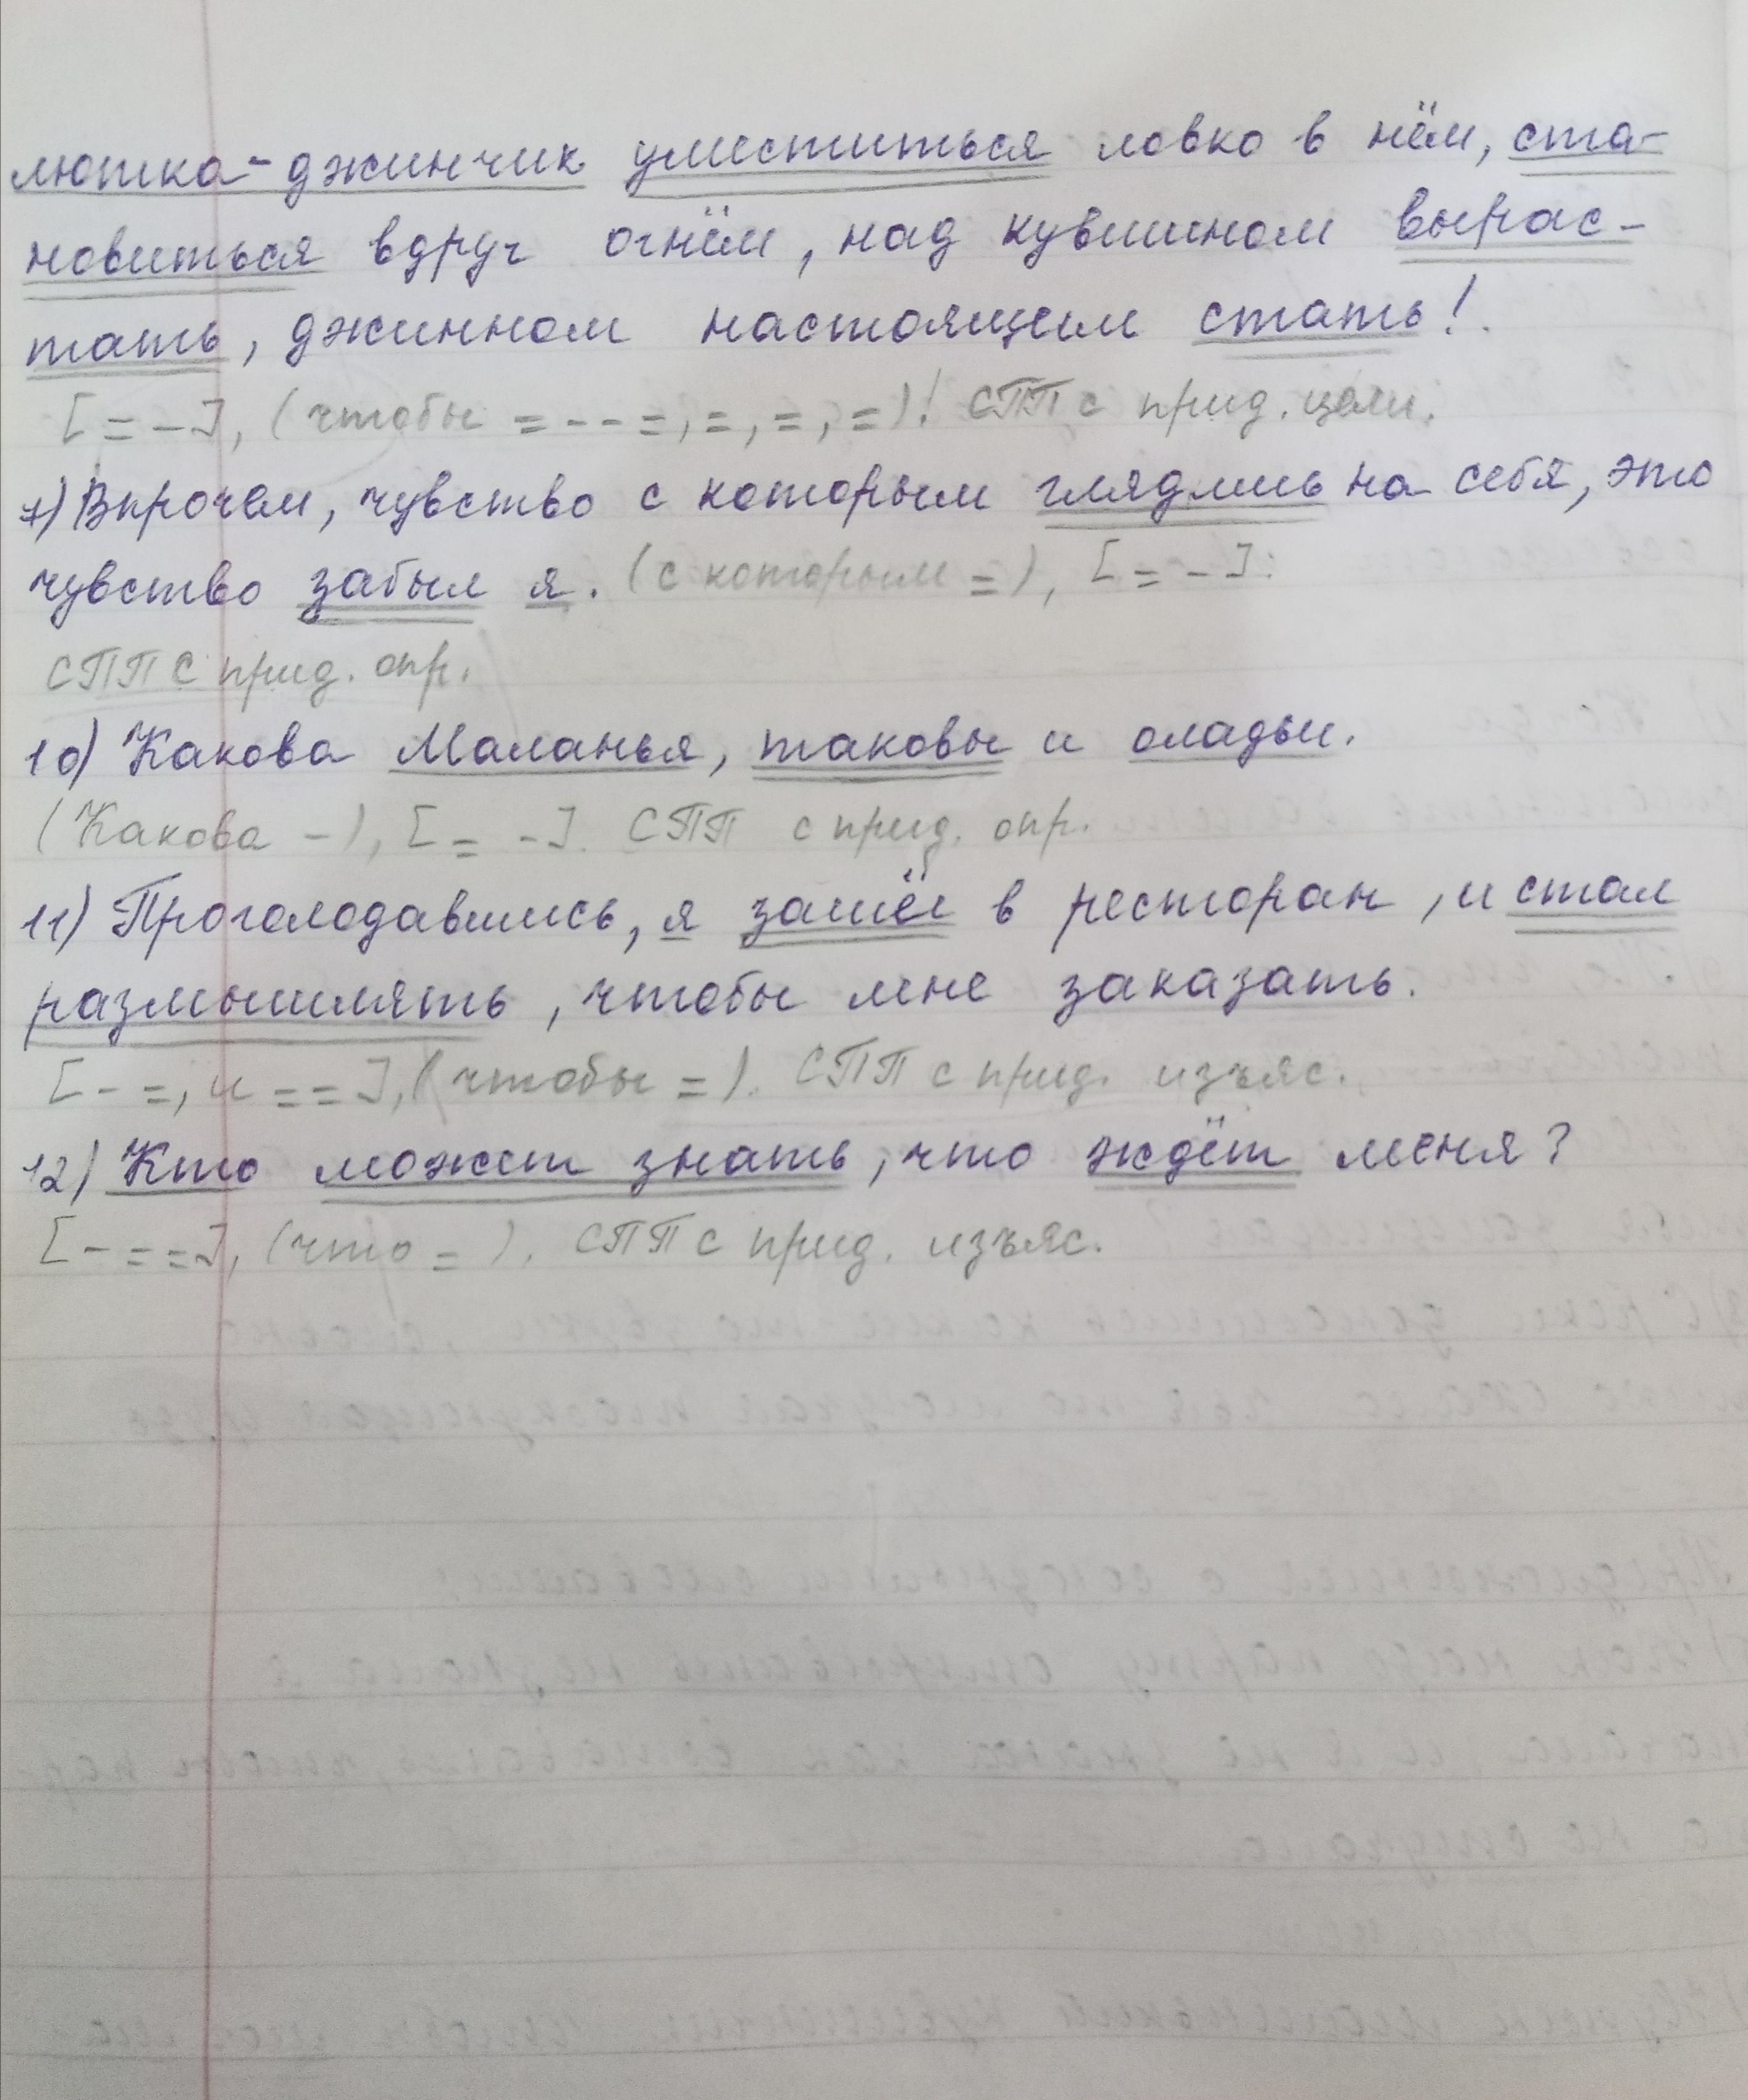 лютка-джинчик уместиться ловко в нём, ста-
новиться вдруг огнём, над кувшином вырас-
тать, джинном настоящим стать!
[= -], (чтобы = - - =, =, =, =)! СПП с прид. цели.
7) Впрочем, чувство с которым глядишь на себя, это
чувство забыл я. (с которым =), [= -].
СПП с прид. опр.
10) Какова Маланья, таковы и оладьи.
(Какова -), [= -]. СПП с прид. опр.
11) Проголодавшись, я зашёл в ресторан, и стал
размышлять, чтобы мне заказать.
[- =, и = =], (чтобы =). СПП с прид. изъяс.
12) Кто может знать, что ждёт меня?
[- = =], (что =). СПП с прид. изъяс.